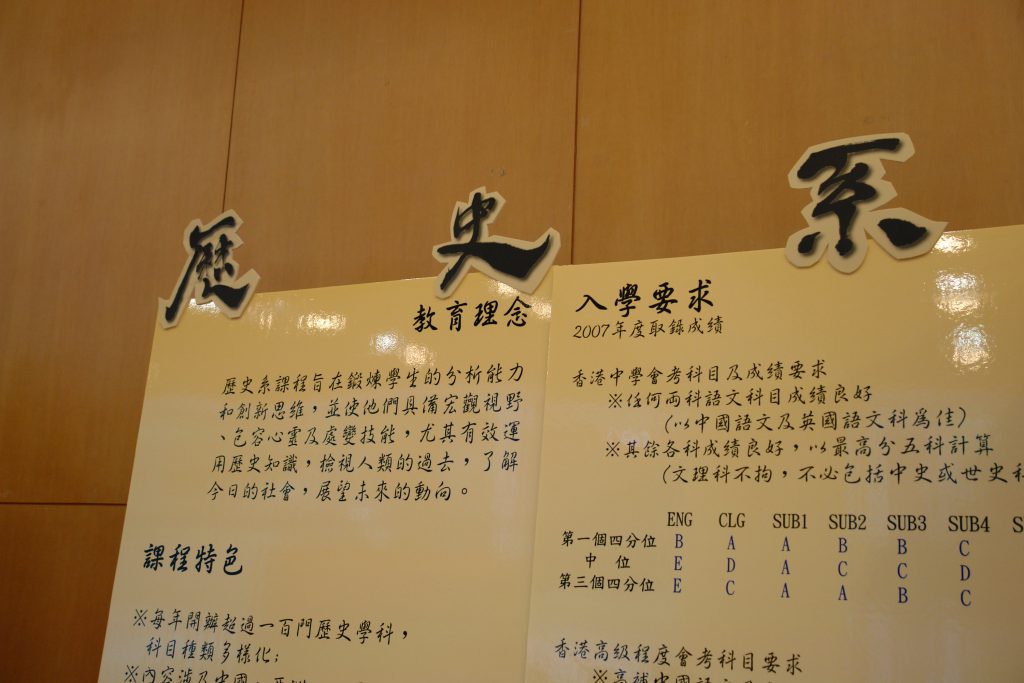 歷史系
教育理念
歷史系課程旨在鍛煉學生的分析能力
和創新思維，並使他們具備宏觀視野
、包容心靈及處變技能，尤其有效運
用歷史知識，檢視人類的過去，了解
今日的社會，展望未來的動向。
課程特色
※每年開辦超過一百門歷史學科，
科目種類多樣化；
※內容涉及中國、
入學要求
2007年度取錄成績
香港中學會考科目及成績要求
※任何両科語文科目成績良好
（以中國語文及英國語文科爲佳）
※其餘各科成績良好，以最高分五科計算
（文理科不拘，不必包括中史或世史科
ENG CLG SUB1 SUB2 SUB3 SUB4 S
第一個四分位 B A A B B C
中 位 E D A C C D
第三個四分位 E C A A B C
香港高級程度會考科目要求
※高補中國語文